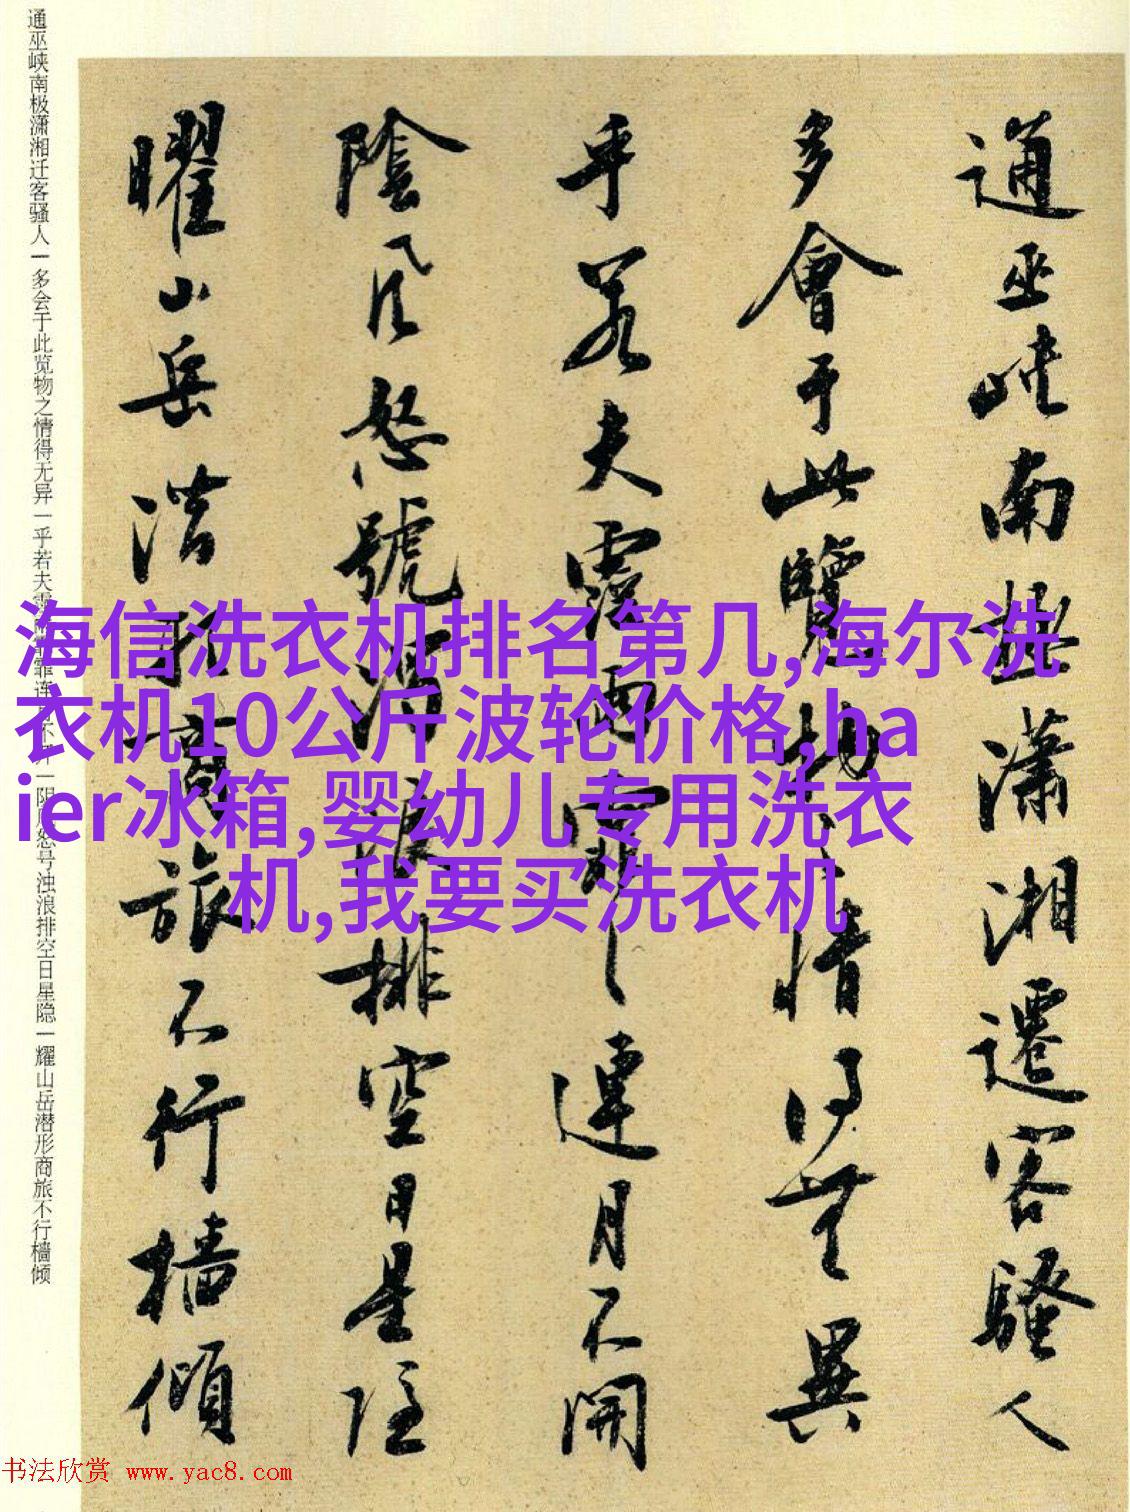 通巫峡南極瀟湘遷客騷人
多會于此覽物之情得無異
乎若夫霪雨霏連月不開
陰風怒號濁浪排空日星隱
曜山岳潜形商旅不行檣傾
通巫峡南极潇湘迁客骚人一多会于此览物之情得无异一乎若夫霏连不开一阴风怒号浊浪排空日星隐一耀山岳潜形商旅不行樯倾
海信洗衣机排名第几,海尔洗
衣机10公斤波轮价格,ha
ier冰箱,婴幼儿专用洗衣
机,我要买洗衣机
书法欣赏 www.yac8.com